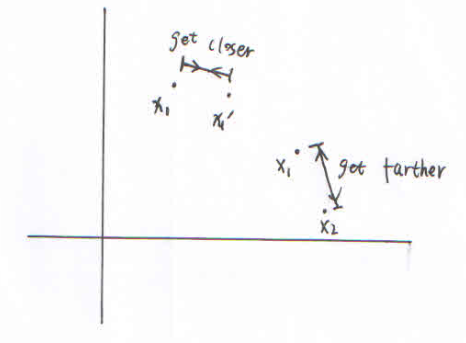 get closer
x₁ x₁'
x₁ get farther
x₂